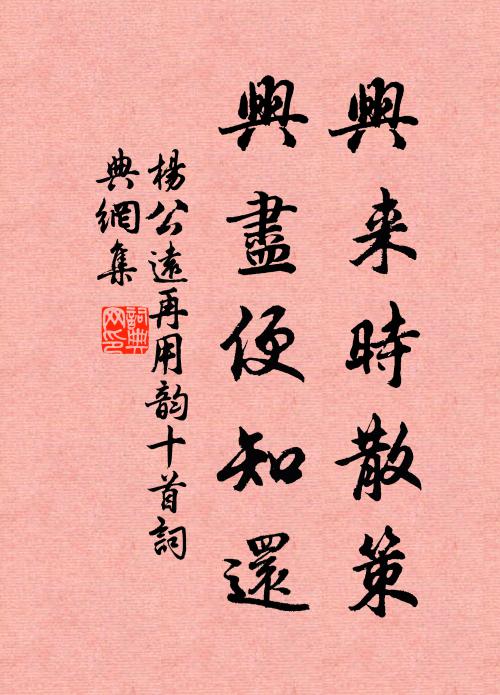 興来時散策
興盡便知還
楊公遠再用韵十首詞
典網集
詞典
网印